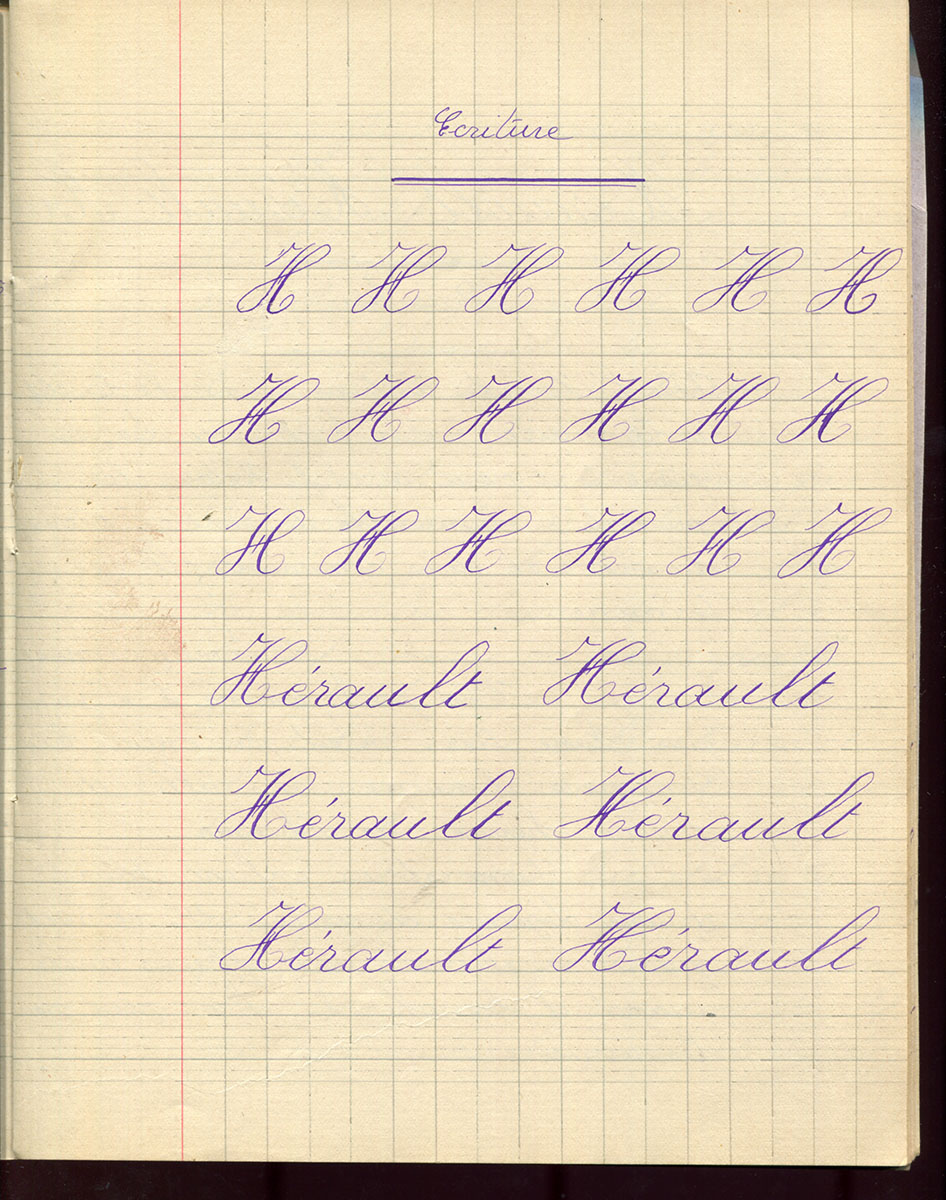 Ecriture
H H H H H H
H H H H H H
H H H H H H
Hérault Hérault
Hérault Hérault
Hérault Hérault